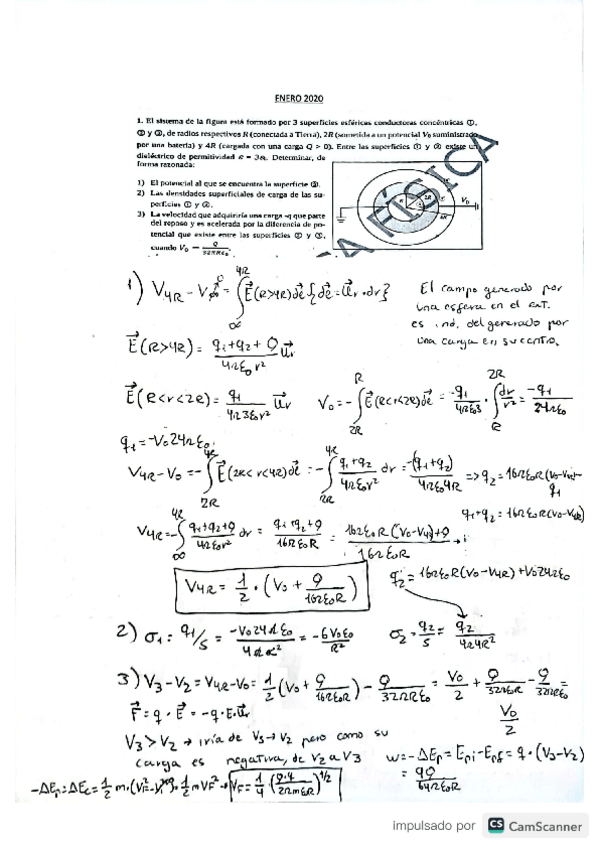 ENERO 2020
1. El sistema de la figura está formado por 3 superficies esféricas conductoras concéntricas ①,
② y ③, de radios respectivos R (conectada a Tierra), 2R (sometida a un potencial V₀ suministrado
por una batería) y 4R (cargada con una carga Q > 0). Entre las superficies ① y ② existe un
dieléctrico de permitividad ε = 3ε₀. Determinar, de
forma razonada:
1) El potencial al que se encuentra la superficie ③.
2) Las densidades superficiales de carga de las su-
perficies ① y ②.
3) La velocidad que adquiriría una carga -q que parte
del reposo y es acelerada por la diferencia de po-
tencial que existe entre las superficies ② y ③,
cuando V₀ = Q/32πRε₀.
R 2R 4R V₀
FÍSICA
1) V4R - V∞ = ∫∞^4R E(R>4R) dr {dr = ur·dr}
El campo generado por
una esfera en el ext.
es ind. del generado por
una carga en su centro.
E(R>4R) = (q1+q2+Q)/(4πε₀r²) ur
E(R<r<2R) = q1/(4π3ε₀r²) ur V₀ = -∫2R^R E(R<r<2R) dr = -q1/(4πε₀3) · ∫R^2R dr/r² = -q1/(24πε₀)
q1 = -V₀24πε₀
V4R - V₀ = -∫2R^4R E(2R<r<4R) dr = -∫2R^4R (q1+q2)/(4πε₀r²) dr = -(q1+q2)/(4πε₀4R) => q2 = 16πε₀R(V₀-V4R)-
q1
q1+q2 = 16πε₀R(V₀-V4R)
V4R = -∫∞^4R (q1+q2+Q)/(4πε₀r²) dr = (q1+q2+Q)/(16πε₀R) = (16πε₀R(V₀-V4)+Q)/(16πε₀R) →
V4R = 1/2 · (V₀ + Q/(16πε₀R))
q2 = 16πε₀R(V₀-V4R)+V₀24πε₀
2) σ1 = q1/S = -V₀24πε₀/(4πR²) = -6V₀ε₀/R² σ2 = q2/S = q2/(4π4R²)
3) V3 - V2 = V4R - V₀ = 1/2 (V₀ + Q/(16πε₀R)) - Q/(32πRε₀) = V₀/2 + Q/(32πε₀R) - Q/(32πRε₀) =
V₀/2
F = q · E = -q·E·ur
V3 > V2 → iría de V3 → V2 pero como su
carga es negativa, de V2 a V3
W = -ΔEp = Epi - Epf = q · (V3-V2)
= qQ/(64πε₀R)
-ΔEp = ΔEc = 1/2 m·(VF²-V₀²) = 1/2 mVF² → VF = 1/4 (Q·q/(2πmε₀R))^1/2
impulsado por CS CamScanner